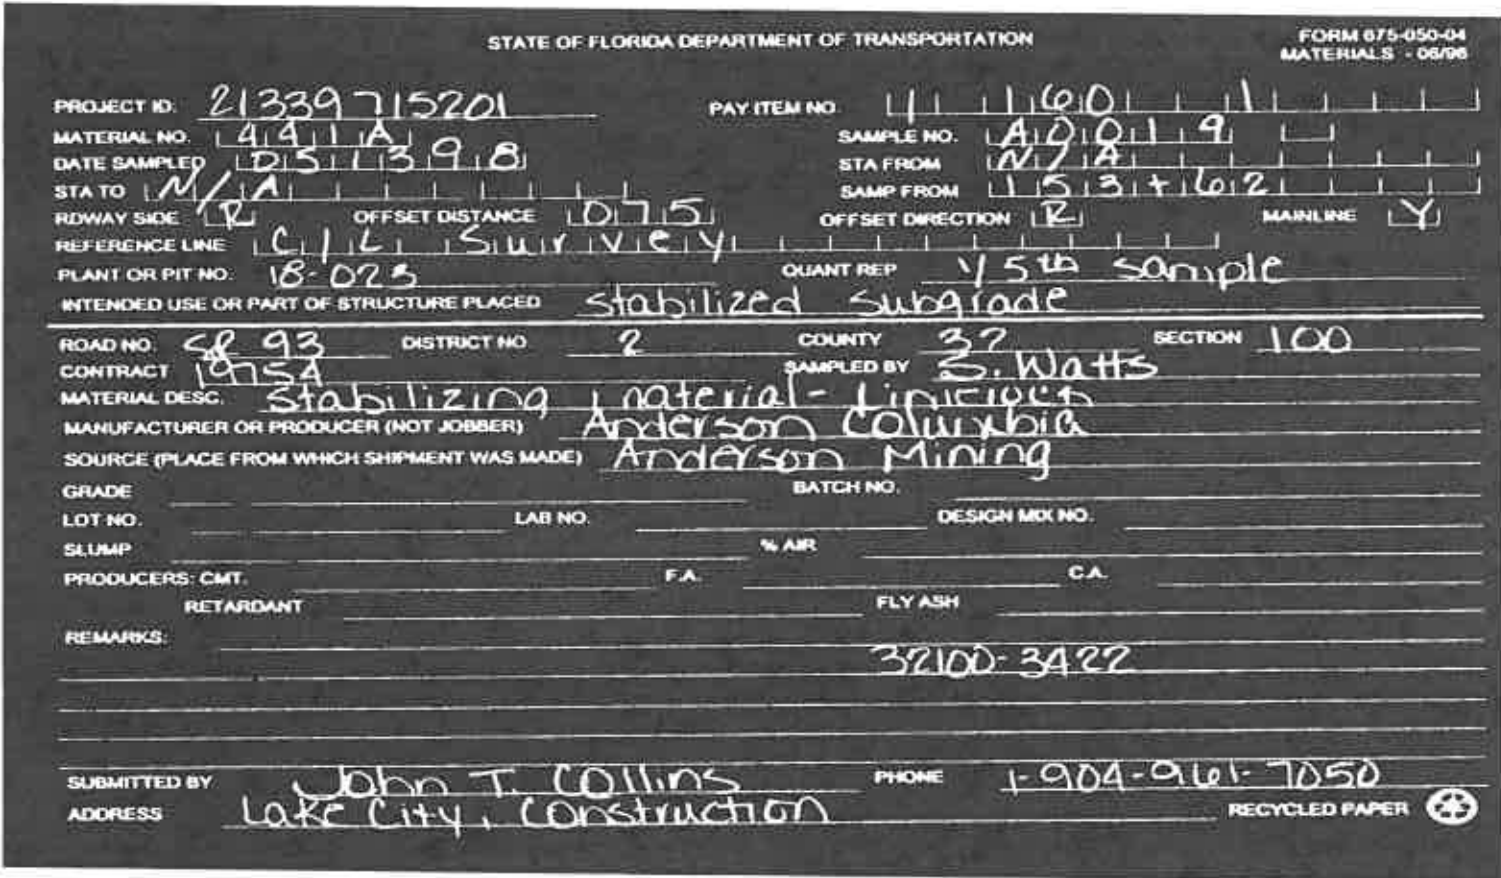 STATE OF FLORIDA DEPARTMENT OF TRANSPORTATION FORM 675-050-04
MATERIALS - 06/96
PROJECT ID. 21339715201 PAY ITEM NO. 160 1
MATERIAL NO. 441A SAMPLE NO. A0019
DATE SAMPLED 051398 STA FROM N/A
STA TO N/A SAMP FROM 153+62
RDWAY SIDE R OFFSET DISTANCE 075 OFFSET DIRECTION R MAINLINE Y
REFERENCE LINE C/L Survey
PLANT OR PIT NO. 18-023 QUANT REP 5th sample
INTENDED USE OR PART OF STRUCTURE PLACED stabilized subgrade
ROAD NO. SR 93 DISTRICT NO 2 COUNTY SECTION 100
CONTRACT SAMPLED BY S. Watts
MATERIAL DESC. Stabilizing material - Limerock
MANUFACTURER OR PRODUCER (NOT JOBBER) Anderson Columbia
SOURCE (PLACE FROM WHICH SHIPMENT WAS MADE) Anderson Mining
GRADE BATCH NO.
LOT NO. LAB NO. DESIGN MIX NO.
SLUMP % AIR
PRODUCERS: CMT. F.A. C.A.
RETARDANT FLY ASH
REMARKS:
32100-3422
SUBMITTED BY John T. Collins PHONE 1-904-961-7050
ADDRESS Lake City, Construction RECYCLED PAPER